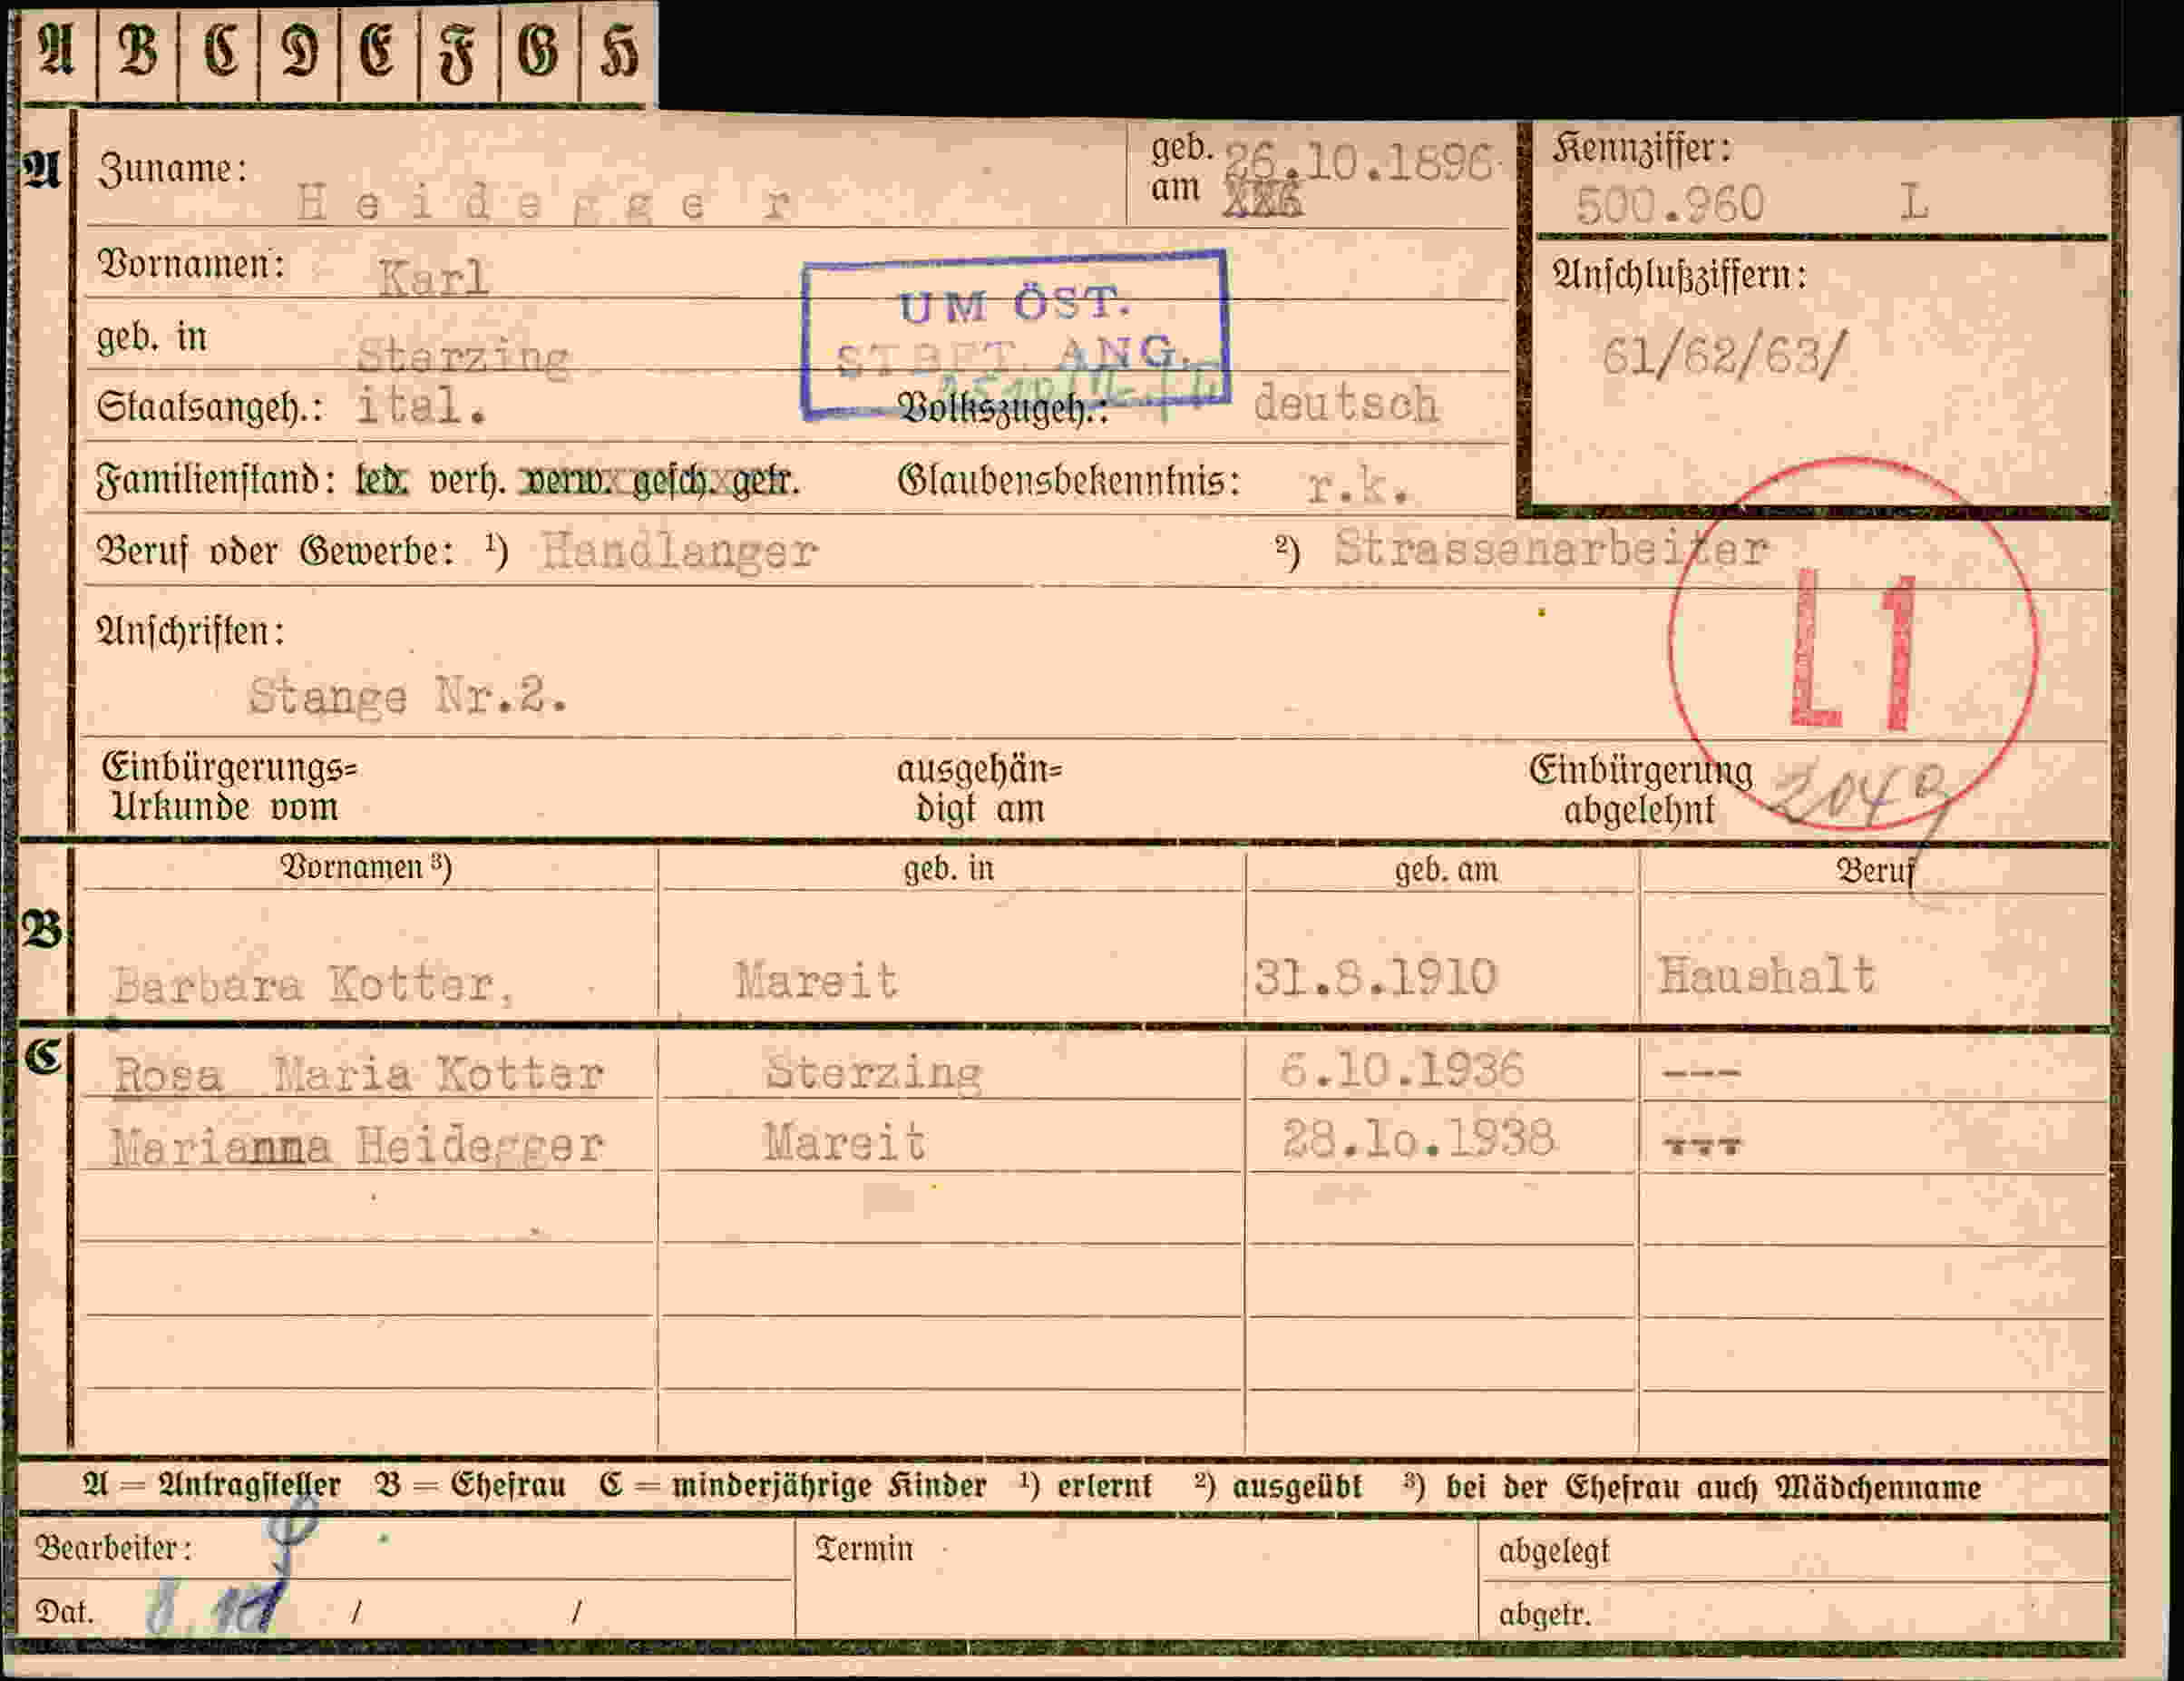 A B C D E F G H
A
Zuname: Heidegger
geb. am 26.10.1896
Kennziffer:
500.960 L
Vornamen: Karl
UM ÖST.
STBFT. ANG.
Anschlußziffern:
61/62/63/
geb. in Sterzing
Staatsangeh.: ital. Volkszugeh.: deutsch
Familienstand: led. verh. verw. gesch. getr. Glaubensbekenntnis: r.k.
Beruf oder Gewerbe: ¹) Handlanger ²) Strassenarbeiter
L1
Anschriften:
Stange Nr.2.
Einbürgerungs=
Urkunde vom
ausgehän=
digt am
Einbürgerung
abgelehnt
Vornamen ³) geb. in geb. am Beruf
B
Barbara Kotter, Mareit 31.8.1910 Haushalt
C
Rosa Maria Kotter Sterzing 6.10.1936 ---
Marianna Heidegger Mareit 28.1o.1938 ---
A = Antragsteller B = Ehefrau C = minderjährige Kinder ¹) erlernt ²) ausgeübt ³) bei der Ehefrau auch Mädchenname
Bearbeiter: Termin abgelegt
Dat. / / abgetr.